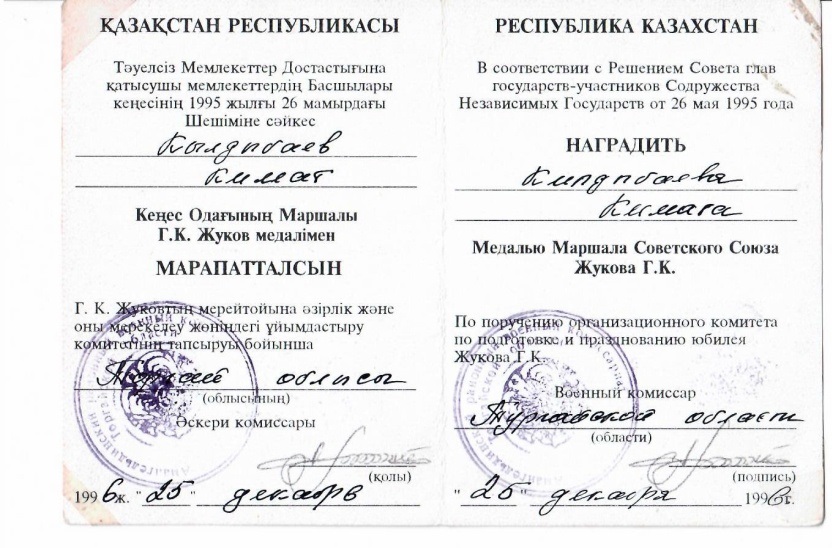 ҚАЗАҚСТАН РЕСПУБЛИКАСЫ
Тәуелсіз Мемлекеттер Достастығына
қатысушы мемлекеттердің Басшылары
кеңесінің 1995 жылғы 26 мамырдағы
Шешіміне сәйкес
Кылдыбаев
Кимат
Кеңес Одағының Маршалы
Г.К. Жуков медалімен
МАРАПАТТАЛСЫН
Г. К. Жуковтың мерейтойына әзірлік және
оны мерекелеу жөніндегі ұйымдастыру
комитетінің тапсыруы бойынша
облысы
(облысының)
Әскери комиссары
(қолы)
1996ж. "25" декабрь
РЕСПУБЛИКА КАЗАХСТАН
В соответствии с Решением Совета глав
государств-участников Содружества
Независимых Государств от 26 мая 1995 года
НАГРАДИТЬ
Кылдыбаева
Кимата
Медалью Маршала Советского Союза
Жукова Г.К.
По поручению организационного комитета
по подготовке и празднованию юбилея
Жукова Г.К.
Военный комиссар
Тургайской области
(области)
(подпись)
"25" декабря 1996г.